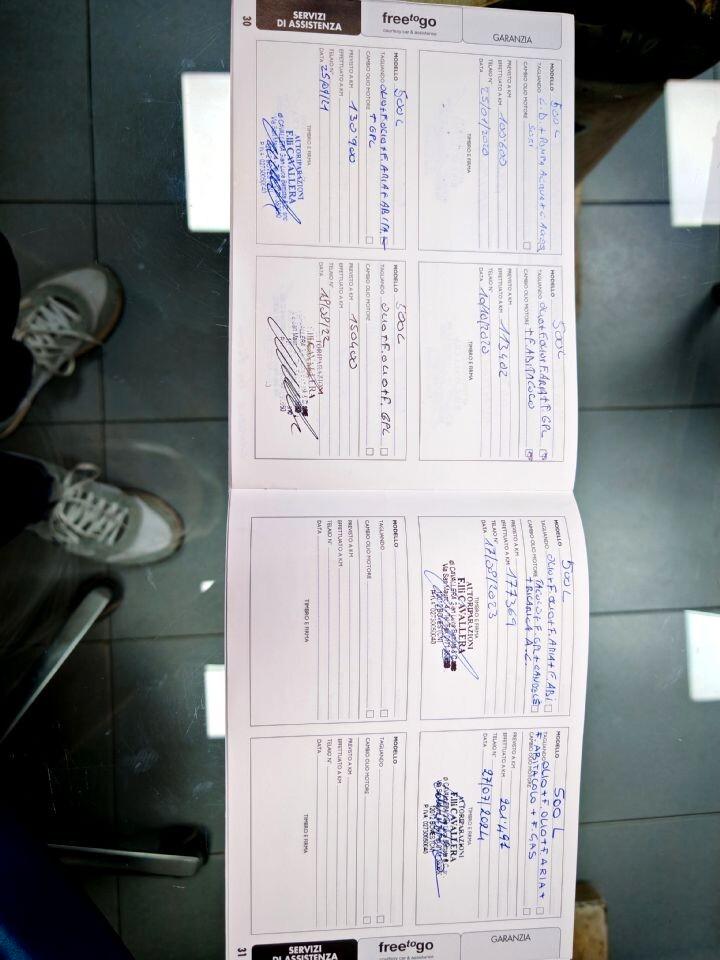 30
SERVIZI
DI ASSISTENZA
freetogo
courtesy car & assistance
GARANZIA
MODELLO 500 L
TAGLIANDO
CAMBIO OLIO MOTORE
PREVISTO A KM
EFFETTUATO A KM 100'600
TELAIO N°
DATA 25/07/2020
TIMBRO E FIRMA
MODELLO 500 L
TAGLIANDO OLIO+F.OLIO+F.ARIA+F.GPL
CAMBIO OLIO MOTORE + F.ABITACOLO
PREVISTO A KM
EFFETTUATO A KM 113402
TELAIO N°
DATA 10/10/2020
TIMBRO E FIRMA
MODELLO 500 L
TAGLIANDO OLIO+F.OLIO+F.ARIA+F.ABI
CAMBIO OLIO MOTORE TACOLO+F.GPL+CANDELE
+ RICARICA A.C.
PREVISTO A KM
EFFETTUATO A KM 177369
TELAIO N°
DATA 17/08/2023
TIMBRO E FIRMA
AUTORIPARAZIONI
F.lli CAVALLERA
MODELLO 500 L
TAGLIANDO OLIO+F.OLIO+F.ARIA+
CAMBIO OLIO MOTORE F.ABITACOLO + F.GAS
PREVISTO A KM
EFFETTUATO A KM 201'497
TELAIO N°
DATA 27/07/2024
TIMBRO E FIRMA
AUTORIPARAZIONI
F.lli CAVALLERA
MODELLO 500 L
TAGLIANDO OLIO+F.OLIO+F.ARIA+ABITA.
CAMBIO OLIO MOTORE + GPL
PREVISTO A KM
EFFETTUATO A KM 130'900
TELAIO N°
DATA 25/09/21
TIMBRO E FIRMA
AUTORIPARAZIONI
F.lli CAVALLERA
MODELLO 500 L
TAGLIANDO OLIO+F.OLIO+F.GPL
CAMBIO OLIO MOTORE
PREVISTO A KM
EFFETTUATO A KM 150400
TELAIO N°
DATA
TIMBRO E FIRMA
AUTORIPARAZIONI
F.lli CAVALLERA
MODELLO
TAGLIANDO
CAMBIO OLIO MOTORE
PREVISTO A KM
EFFETTUATO A KM
TELAIO N°
DATA
TIMBRO E FIRMA
MODELLO
TAGLIANDO
CAMBIO OLIO MOTORE
PREVISTO A KM
EFFETTUATO A KM
TELAIO N°
DATA
TIMBRO E FIRMA
31
SERVIZI
DI ASSISTENZA
freetogo
courtesy car & assistance
GARANZIA